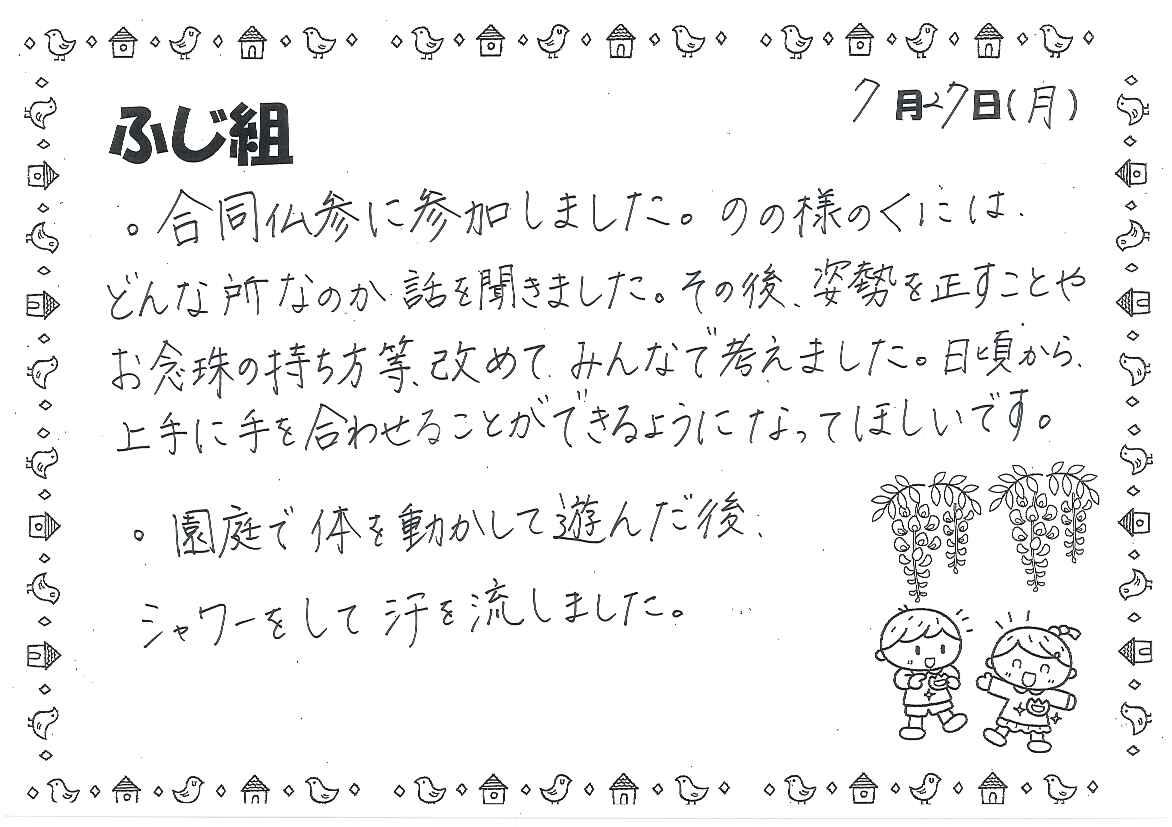 7月27日(月)
ふじ組
。合同仏参に参加しました。のの様のくにには、
どんな所なのか話を聞きました。その後、姿勢を正すことや
お念珠の持ち方等、改めて、みんなで考えました。日頃から、
上手に手を合わせることができるようになってほしいです。
。園庭で体を動かして遊んだ後、
シャワーをして汗を流しました。